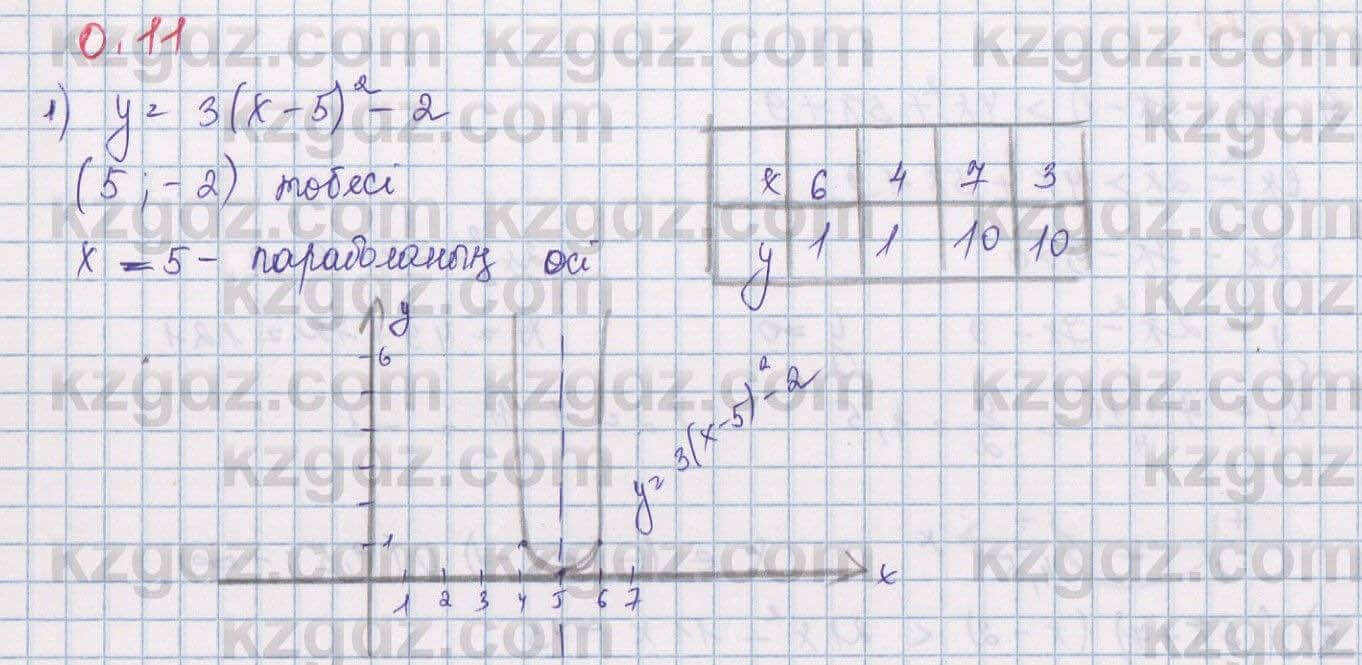 0.11
1) y = 3(x-5)² - 2
(5; -2) төбесі
x = 5 - параболаның осі
x 6 4 7 3
y 1 1 10 10
y
6
1
1 2 3 4 5 6 7
x
y = 3(x-5)² - 2
kzgdz.com